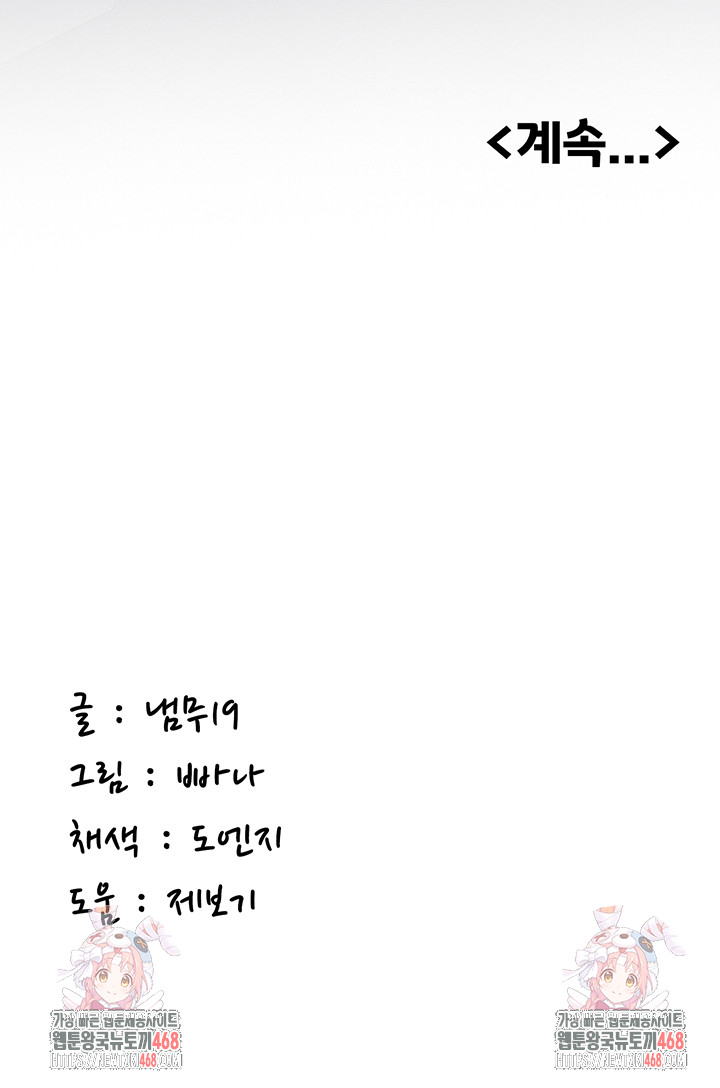 <계속...>
글 : 냄무19
그림 : 빠나
채색 : 도엔지
도움 : 제보기
가장 빠른 웹툰제공사이트
웹툰왕국뉴토끼468
HTTPS://NEWTOKI468.COM
가장 빠른 웹툰제공사이트
웹툰왕국뉴토끼468
HTTPS://NEWTOKI468.COM